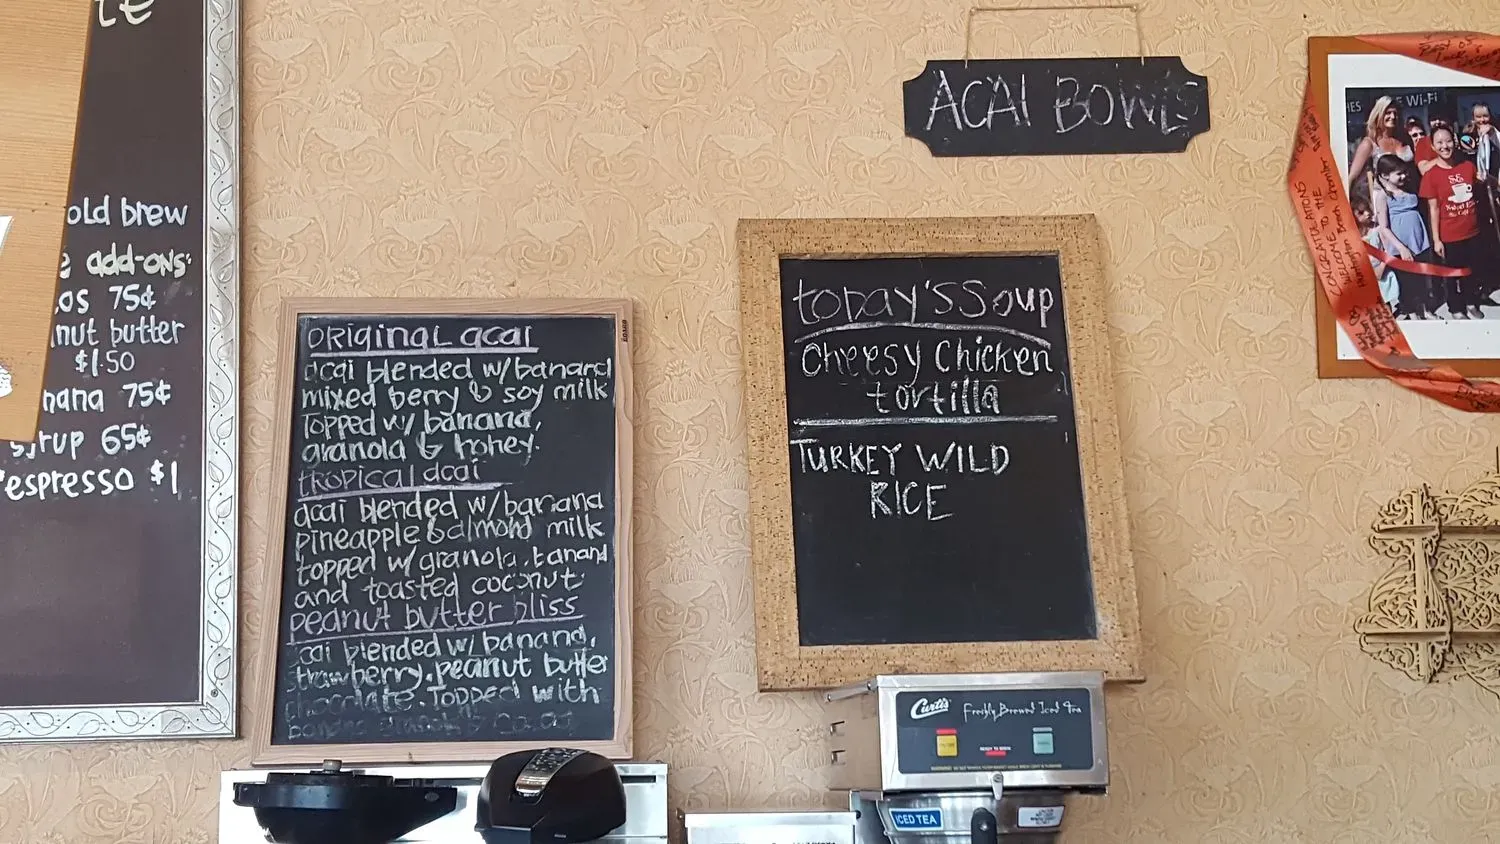 te
old brew
add-ons:
os 75¢
nut butter
$1.50
nana 75¢
syrup 65¢
espresso $1
original acai
acai blended w/banana
mixed berry & soy milk
Topped w/ banana,
granola & honey.
tropical acai
acai blended w/banana
pineapple & almond milk
topped w/granola, banana
and toasted coconut
peanut butter bliss
acai blended w/ banana,
strawberry, peanut butter
chocolate. Topped with
ACAI BOWLS
today's Soup
Cheesy Chicken
tortilla
TURKEY WILD
RICE
Curtis
Freshly Brewed Iced Tea
READY TO BREW
ICED TEA
Wi-Fi
CONGRATULATIONS
WELCOME TO THE
Huntington Beach Chamber